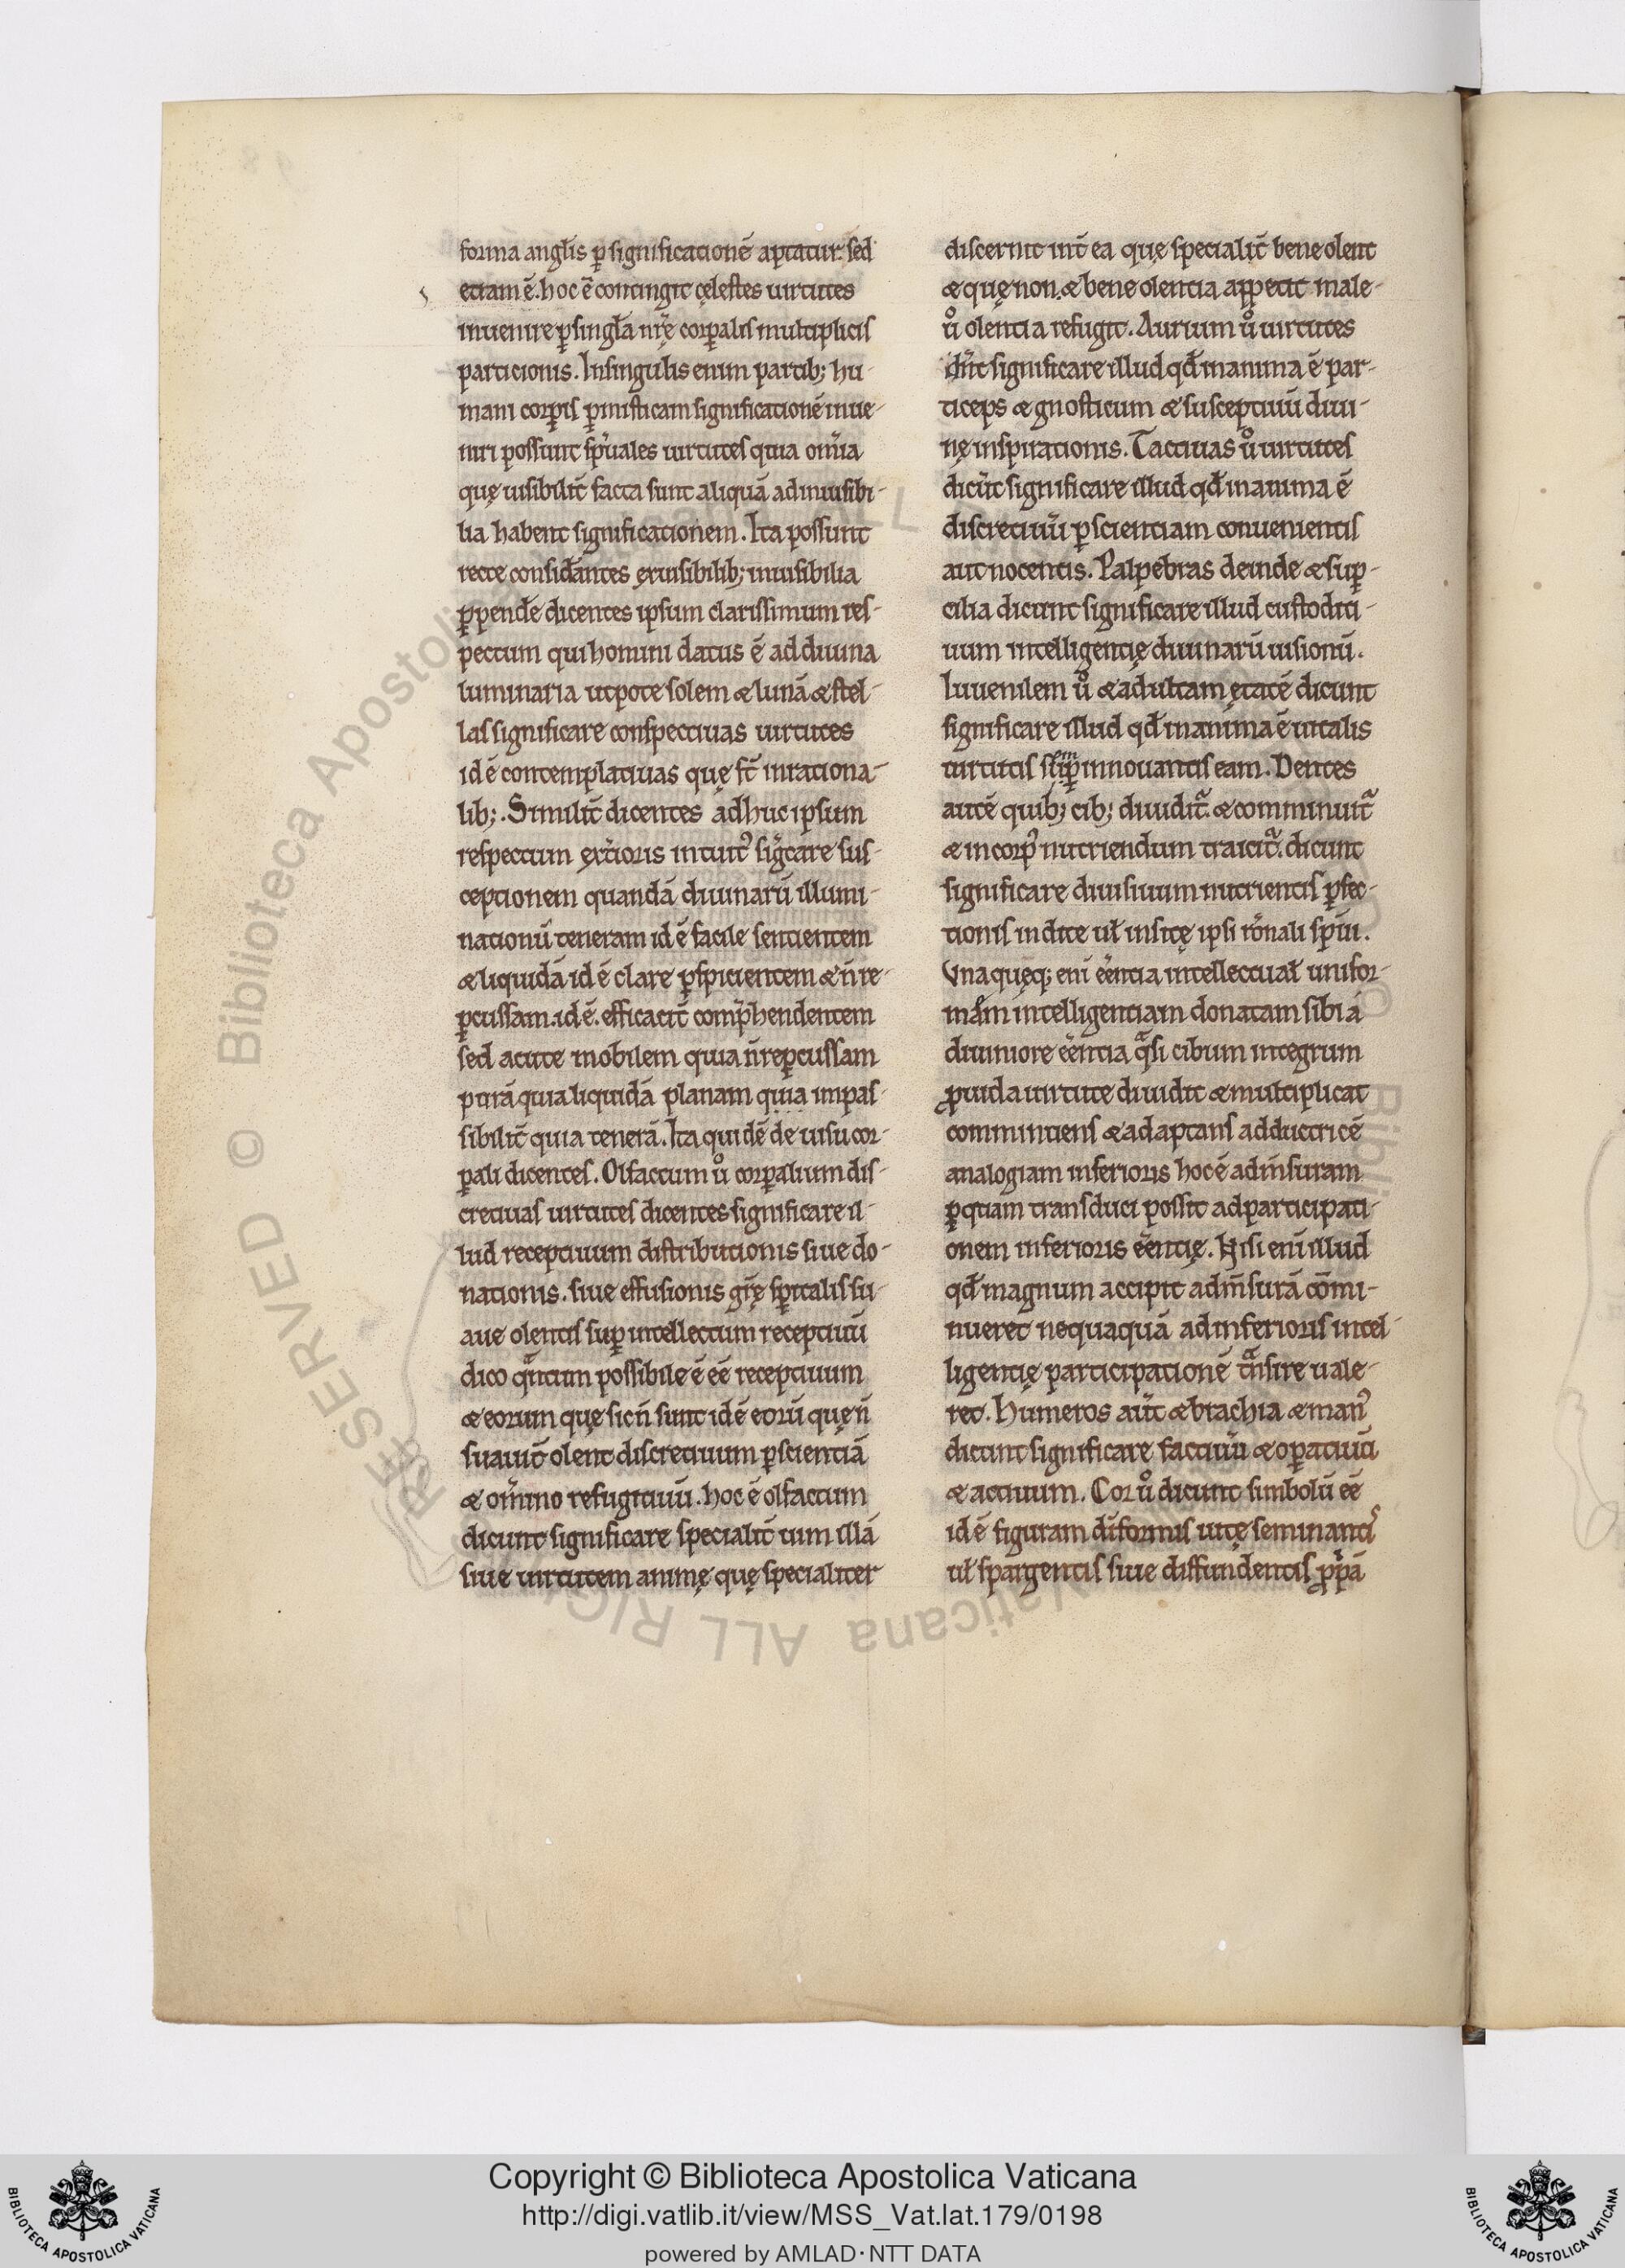 forma angl̄is ꝑ significationē aptatur. sed
etiam ē. hoc ē contingit cęlestes uirtutes
inuenire ꝑ singl̄a nr̄ę corꝑalis multiplicis
particionis. In singulis enim partib; hu-
mani corꝑis ꝑ misticam significationē inue-
niri possunt sp̄uales uirtutes quia om̄ia
quę uisibilit̄ facta sunt aliquā ad inuisibi-
lia habent significationem. Ita possunt
recte consid̄antes ex uisibilib; inuisibilia
ꝑpende dicentes ipsum clarissimum res-
pectum qui homini datus ē ad diuina
luminaria utpote solem & lunā & stel-
las significare conspectiuas uirtutes
id ē contemplatiuas quę st̄ in rationa-
lib;. Similit̄ dicentes adhuc ipsum
respectum ext̄ioris intuit᷒ sig̅care sus-
ceptionem quandā diuinarū illumi-
nationū teneram id ē facile sentientem
& liquidā id ē clare ꝑspicientem & n̄ re-
ꝑcussam. id ē. efficacit̄ comp̄hendentem
sed acute mobilem quia n̄ reꝑcussam
purā quia liquidā planam quia impas-
sibilit̄ quia tenerā. Ita quidē de uisu cor-
ꝑali dicentes. Olfactum ů corꝑalium dis-
cretiuas uirtutes dicentes significare il-
lud receptiuum distributionis siue do-
nationis. siue effusionis gr̄ę sp̄italis su-
aue olentis suꝑ intellectum receptiuū
dico qͣntum possibile ē eē receptiuum
& eorum quę sic n̄ sunt id ē eorū quę n̄
suauit̄ olent discretiuum ꝑ scientiā
& om̄ino refugitiuū. hoc ē olfactum
dicunt significare specialit̄ uim illā
siue uirtutem animę quę specialiter
discernit int̄ ea quę specialit̄ bene olent
& quę non. & bene olentia appetit male-
ů olentia refugit. Aurium ů uirtutes
dn̄t significare illud qd̄ in anima ē par-
ticeps & gnosticum & susceptiuū diui-
nę inspirationis. Tactiuas ů uirtutes
dicūt significare illud qd̄ in anima ē
discretiuū ꝑ scientiam conuenientis
aut nocentis. Palpebras deinde & suꝑ-
cilia dicunt significare illud custoditi-
uum intelligentię diuinarū uisionū.
Iuuenilem ů & adultam ętatē dicunt
significare illud qd̄ in anima ē uitalis
uirtutis semꝑ innouantis eam. Dentes
autē quib; cib; diuidit᷑ & comminuit᷑
& in corp᷒ nutriendum traicit᷑ dicunt
significare diuisiuum nutrientis ꝑfec-
tionis indite ul̄ insitę ipsi rōnali sp̄iu.
Vnaquęq; eni ēēntia intellectual̄ unifor-
mām intelligentiam donatam sibi a
diuiniore ēēntia qͣsi cibum integrum
ꝓuida uirtute diuidit & multiplicat
comminuens & adaptans adductricē
analogiam inferioris hoc ē adm̄suram
ꝑ quam transduci possit ad participati-
onem inferioris ēēntię. Nisi eni illud
qd̄ magnum accipit adm̄surā cōmi-
nueret nequaquā ad inferioris intel-
ligentię participationē tͣnsire uale-
ret. Humeros aūt & brachia & man᷒
dicunt significare factiuū & oꝑatiuū
& actiuum. Cor ů dicunt simbolū eē
id ē figuram dīformis uitę seminantis
ul̄ spargentis siue diffundentis ꝓpͥā
Copyright © Biblioteca Apostolica Vaticana
http://digi.vatlib.it/view/MSS_Vat.lat.179/0198
powered by AMLAD·NTT DATA
BIBLIOTECA APOSTOLICA VATICANA
BIBLIOTECA APOSTOLICA VATICANA